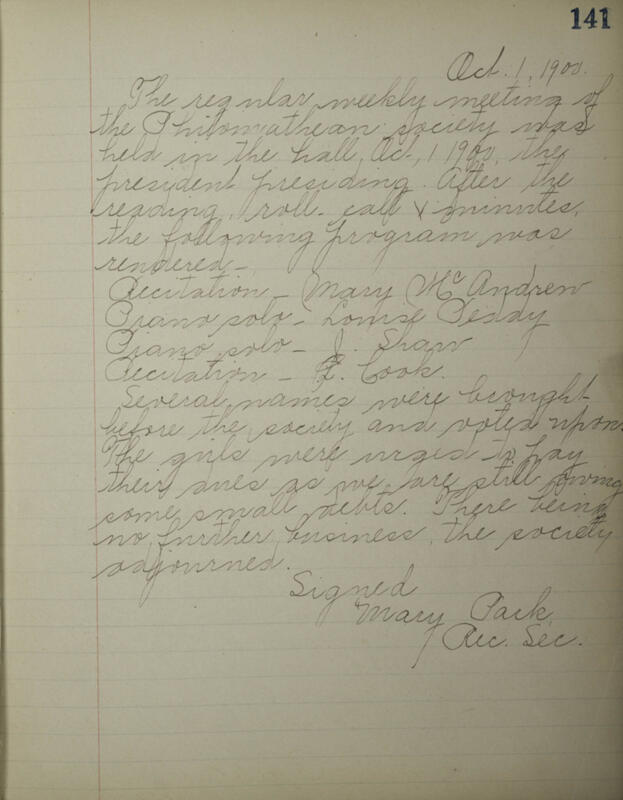 141
Oct. 1, 1900.
The regular weekly meeting of
the Philomathean society was
held in the hall, Oct, 1 1900, the
president presiding. After the
reading, roll-call & minutes,
the following program was
rendered-
Recitation - Mary McAndrew
Piano solo - Louise Peddy
Piano solo - J. Shaw
Recitation - E. Cook.
Several names were brought
before the society and voted upon.
The girls were urged to pay
their dues as we are still owing
some small debts. There being
no further business, the society
adjourned.
Signed
Mary Pack,
Rec. Sec.